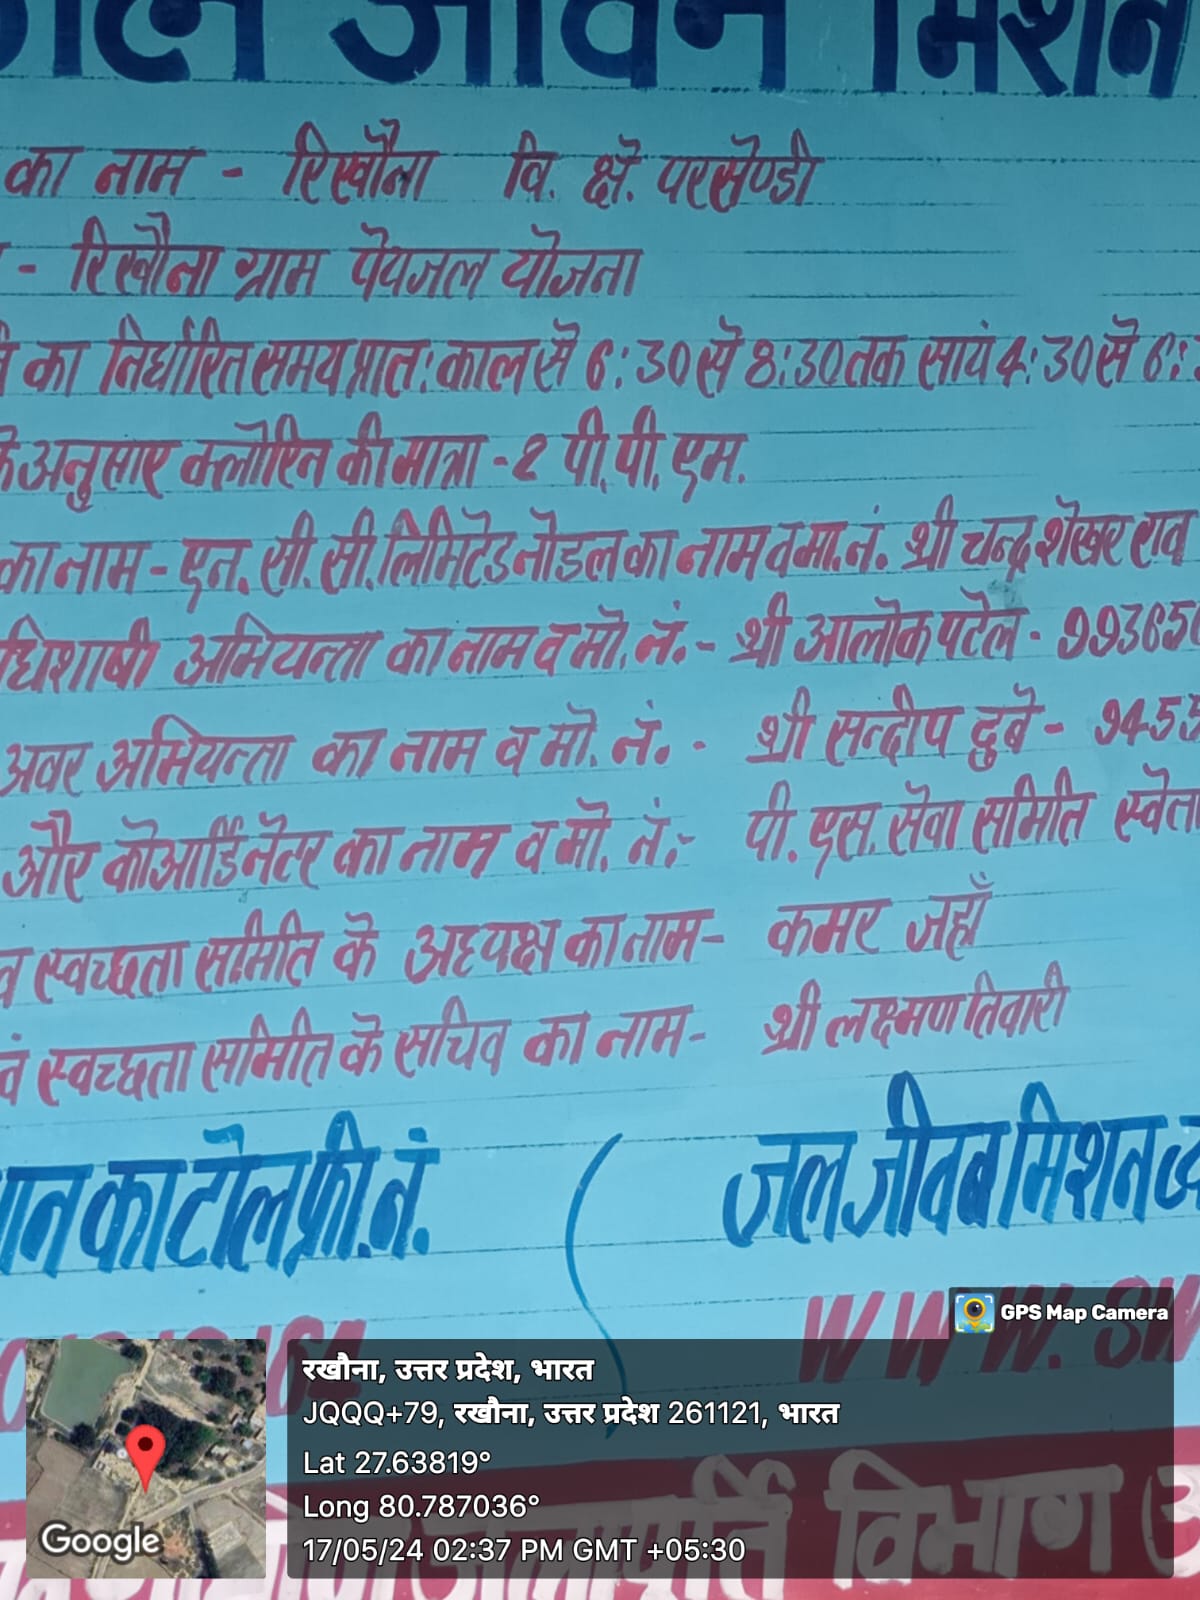 जल जीवन मिशन
का नाम - रिखौना वि. क्षे. परसेण्डी
- रिखौना ग्राम पेयजल योजना
का निर्धारित समय प्रातः काल से 6:30 से 8:30 तक सायं 4:30 से 6:
के अनुसार क्लोरिन की मात्रा - 2 पी. पी. एम.
का नाम - एन. सी. सी. लिमिटेड नोडल का नाम व मो. नं. श्री चन्द्र शेखर राव
धिशाषी अभियन्ता का नाम व मो. नं. - श्री आलोक पटेल - 993650
अवर अभियन्ता का नाम व मो. नं. - श्री सन्दीप दुबे - 9455
और कोआर्डिनेटर का नाम व मो. नं:- पी. एस. सेवा समिति स्वेता
व स्वच्छता समिति के अध्यक्ष का नाम - कमर जहाँ
वं स्वच्छता समिति के सचिव का नाम - श्री लक्ष्मण तिवारी
का टोल फ्री. नं. ( जल जीवन मिशन
164 WWW. SW
जलापूर्ति विभाग (
GPS Map Camera
रखौना, उत्तर प्रदेश, भारत
JQQQ+79, रखौना, उत्तर प्रदेश 261121, भारत
Lat 27.63819°
Long 80.787036°
17/05/24 02:37 PM GMT +05:30
Google